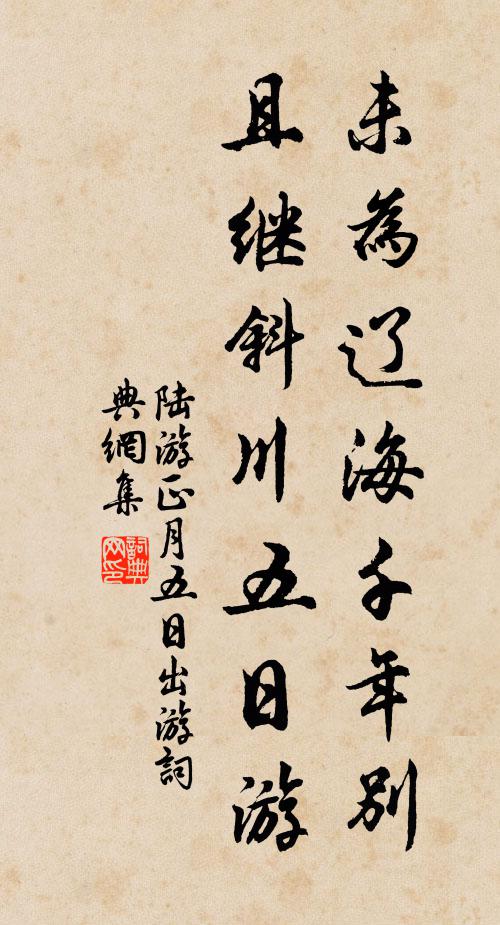 未為辽海千年别
且继斜川五日游
陆游正月五日出游詞
典網集
詞典
网印